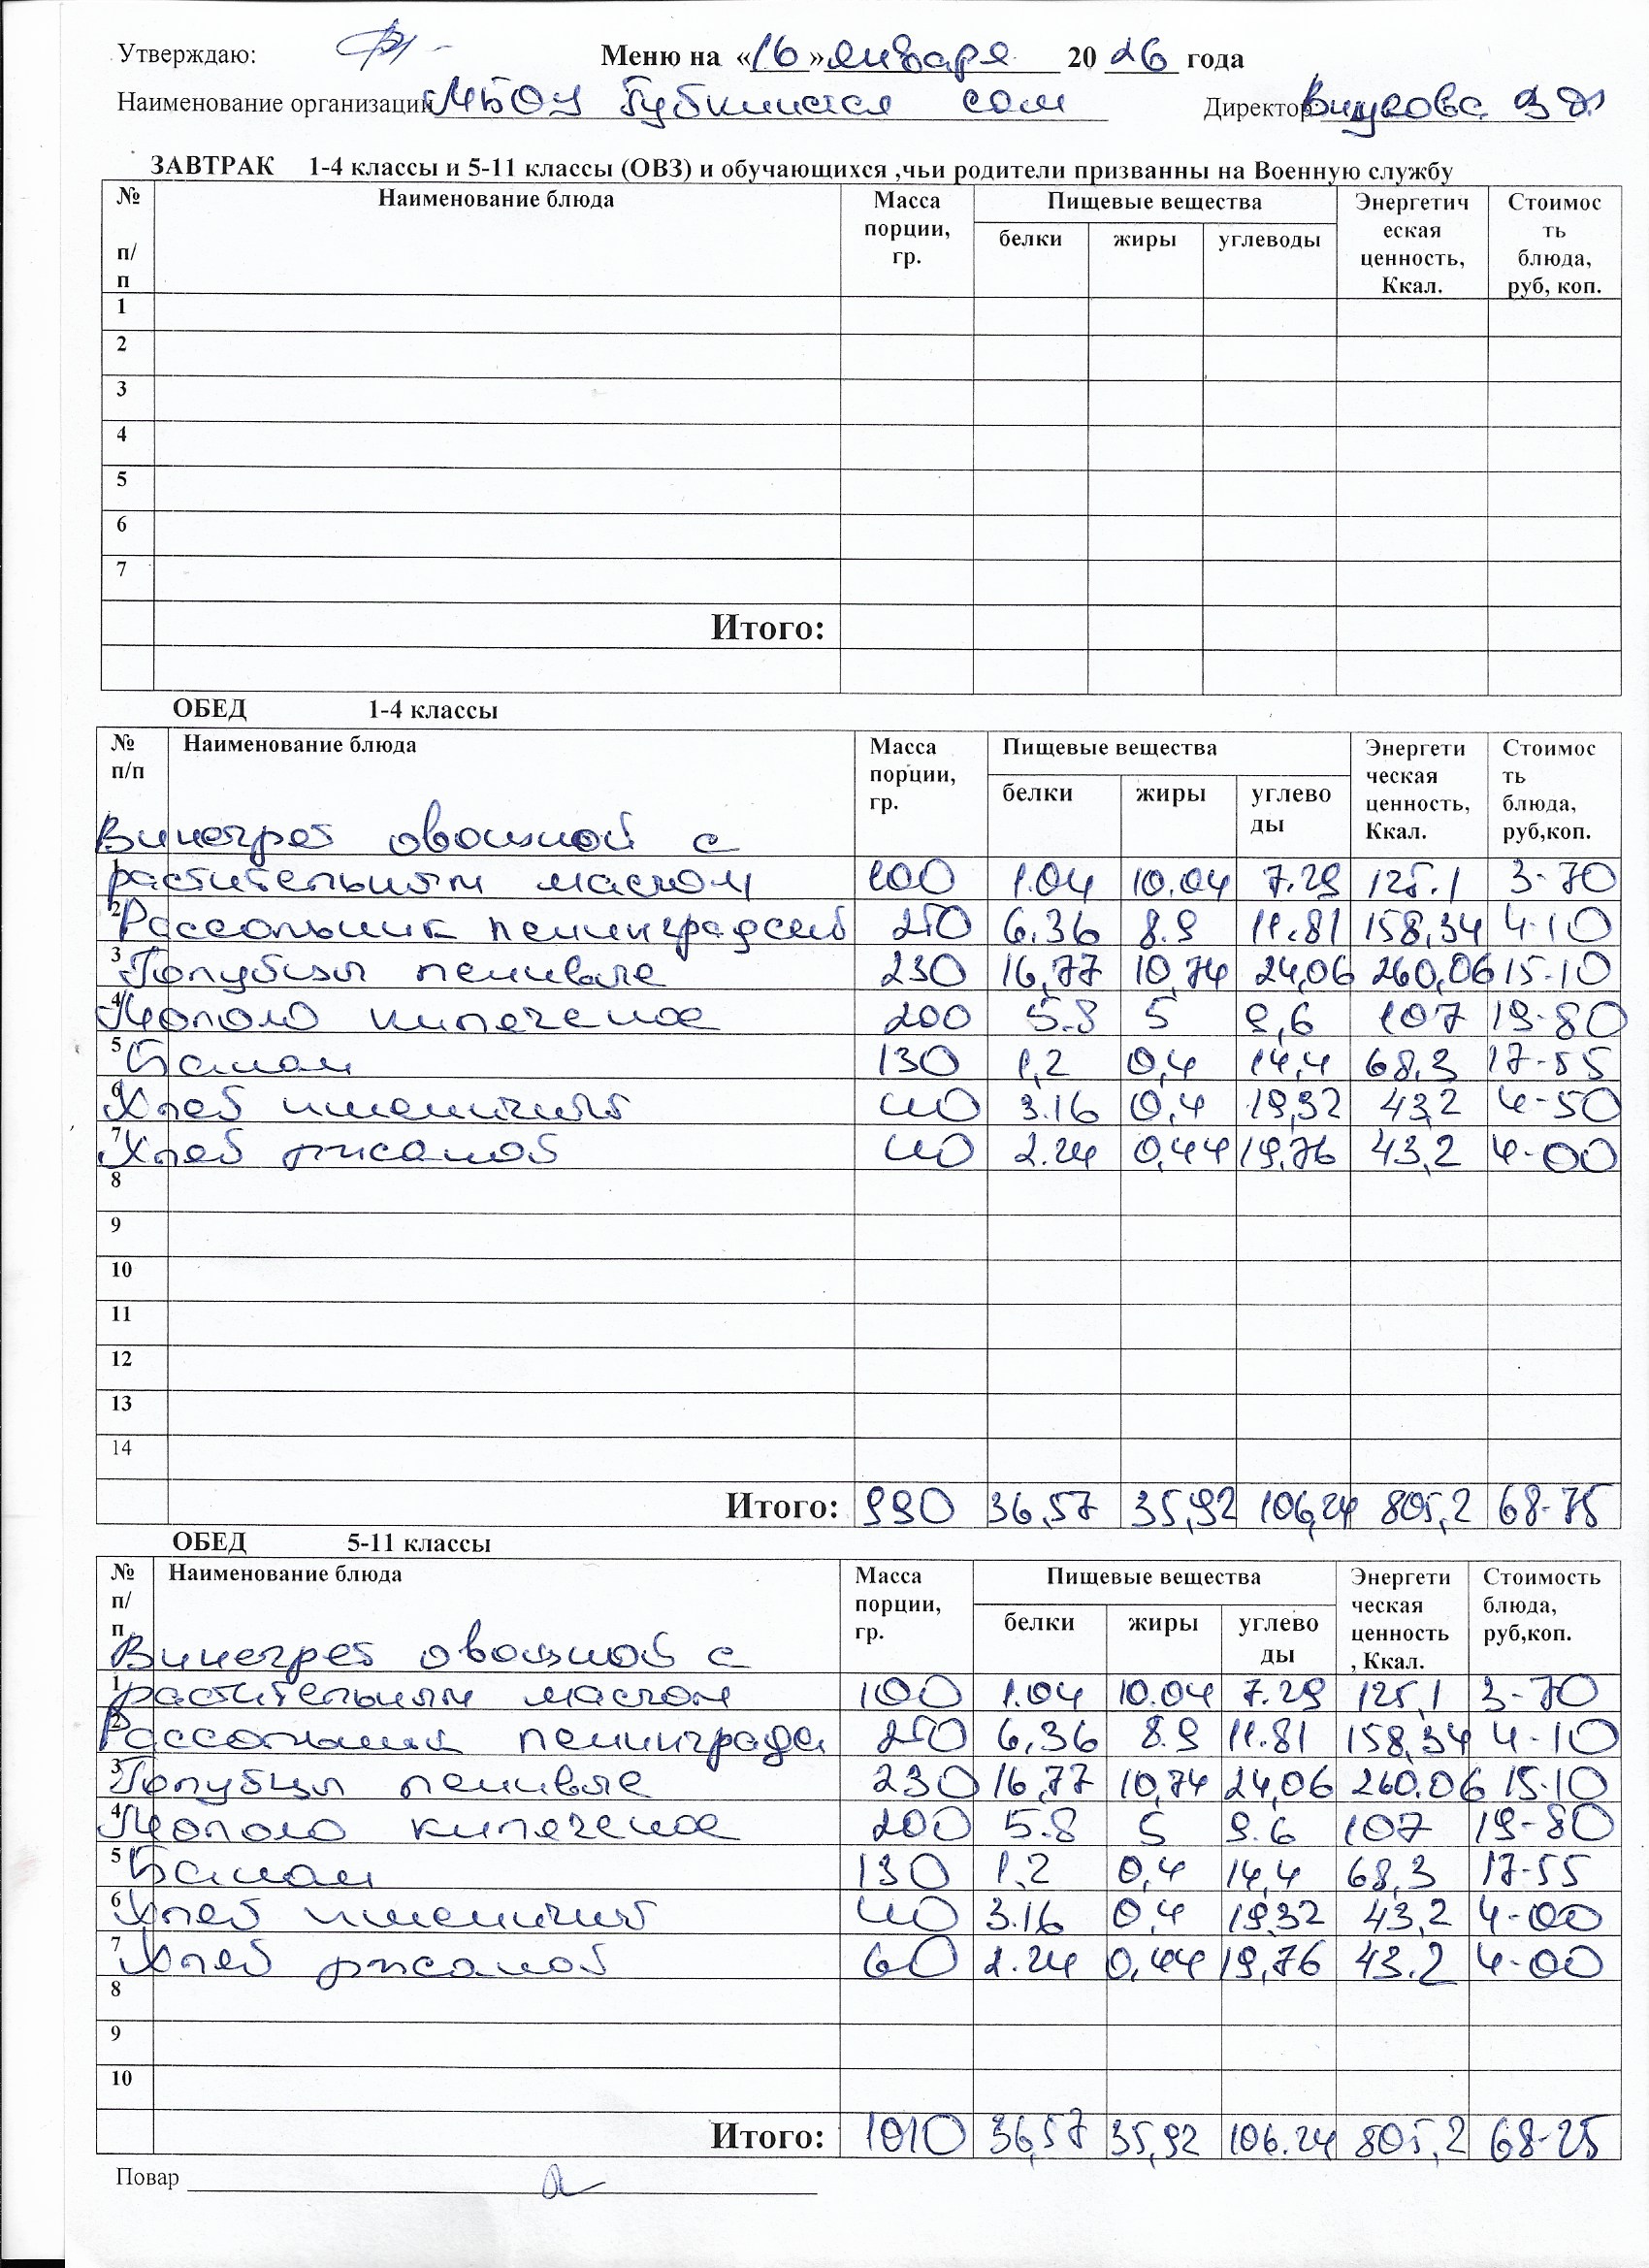 Утверждаю: Меню на «16» января 20 26 года
Наименование организации МБОУ Губкинская сош Директор
ЗАВТРАК 1-4 классы и 5-11 классы (ОВЗ) и обучающихся ,чьи родители призванны на Военную службу
№ п/п Наименование блюда Масса порции, гр. Пищевые вещества Энергетическая ценность, Ккал. Стоимость блюда, руб, коп.
белки жиры углеводы
1
2
3
4
5
6
7
Итого:
ОБЕД 1-4 классы
№ п/п Наименование блюда Масса порции, гр. Пищевые вещества Энергетическая ценность, Ккал. Стоимость блюда, руб,коп.
белки жиры углеводы
Винегрет овощной с
1 растительным маслом 100 1.04 10.04 7.29 125.1 3-70
2 Рассольник ленинградский 250 6.36 8.9 11.81 158,34 4-10
3 Голубцы ленивые 230 16,77 10,74 24,06 260,06 15-10
4 Молоко кипяченое 200 5.8 5 9,6 107 19-80
5 Банан 130 1,2 0,4 14,4 68,3 17-55
6 Хлеб пшеничный 40 3.16 0,4 19,32 43,2 4-50
7 Хлеб ржаной 40 2.24 0,44 19,76 43,2 4-00
8
9
10
11
12
13
14
Итого: 990 36,57 35,92 106,24 805,2 68-75
ОБЕД 5-11 классы
№ п/п Наименование блюда Масса порции, гр. Пищевые вещества Энергетическая ценность, Ккал. Стоимость блюда, руб,коп.
белки жиры углеводы
Винегрет овощной с
1 растительным маслом 100 1.04 10.04 7.29 125,1 3-70
2 Рассольник ленинградс 250 6,36 8.9 11.81 158,34 4-10
3 Голубцы ленивые 230 16,77 10,74 24,06 260.06 15-10
4 Молоко кипяченое 200 5.8 5 9.6 107 19-80
5 Банан 130 1,2 0,4 14,4 68,3 17-55
6 Хлеб пшеничный 40 3.16 0,4 19,32 43,2 4-00
7 Хлеб ржаной 60 2.24 0,44 19,76 43.2 4-00
8
9
10
Итого: 1010 36,57 35,92 106.24 805,2 68-25
Повар